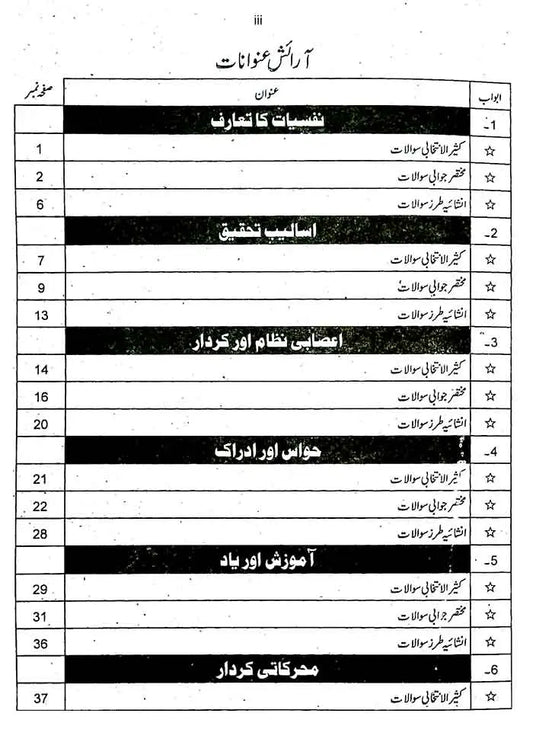 iii
آرائش عنوانات
ابواب عنوان صفحہ نمبر
1۔ نفسیات کا تعارف
☆ کثیر الانتخابی سوالات 1
☆ مختصر جوابی سوالات 2
☆ انشائیہ طرز سوالات 6
2۔ اسالیب تحقیق
☆ کثیر الانتخابی سوالات 7
☆ مختصر جوابی سوالات 9
☆ انشائیہ طرز سوالات 13
3۔ اعصابی نظام اور کردار
☆ کثیر الانتخابی سوالات 14
☆ مختصر جوابی سوالات 16
☆ انشائیہ طرز سوالات 20
4۔ حواس اور ادراک
☆ کثیر الانتخابی سوالات 21
☆ مختصر جوابی سوالات 22
☆ انشائیہ طرز سوالات 28
5۔ آموزش اور یاد
☆ کثیر الانتخابی سوالات 29
☆ مختصر جوابی سوالات 31
☆ انشائیہ طرز سوالات 36
6۔ محرکاتی کردار
☆ کثیر الانتخابی سوالات 37